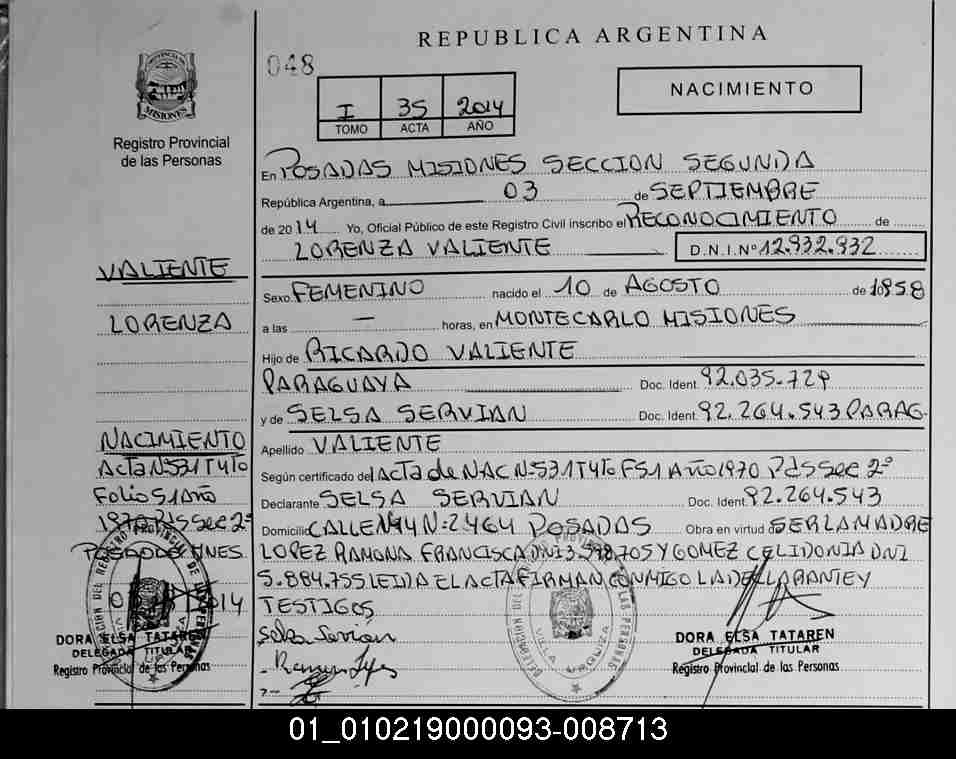 REPUBLICA ARGENTINA
048
PROVINCIA DE MISIONES
Registro Provincial
de las Personas
I 35 2014
TOMO ACTA AÑO
NACIMIENTO
En POSADAS MISIONES SECCION SEGUNDA
República Argentina, a 03 de SEPTIEMBRE
de 2014 Yo, Oficial Público de este Registro Civil inscribo el RECONOCIMIENTO de
LORENZA VALIENTE D.N.I.Nº 12.932.932
Sexo FEMENINO nacido el 10 de AGOSTO de 1958
a las — horas, en MONTECARLO MISIONES
Hijo de RICARDO VALIENTE
PARAGUAYA Doc. Ident. 92.035.729
y de SELSA SERVIAN Doc. Ident. 92.264.543 PARAG.
Apellido VALIENTE
Según certificado del ACTA de NAC Nº 531 Tº 4to Fº 51 Año 1970 Pdas Sec 2º
Declarante SELSA SERVIAN Doc. Ident. 92.264.543
Domicilio CALLE Nº 94 Nº 2464 POSADAS Obra en virtud SER LA MADRE
LOPEZ RAMONA FRANCISCA DNI 3.598.705 Y GOMEZ CELIDONIA DNI
5.884.755 LEIDA EL ACTA FIRMAN CONMIGO LA DECLARANTE Y
TESTIGOS
Selsa Servian
DORA ELSA TATAREN
DELEGADA TITULAR
Registro Provincial de las Personas
VALIENTE
LORENZA
NACIMIENTO
Acta Nº 531 Tº 4to
Folio 51 Año
1970 Pdas Sec 2º
POSADAS MNES
2014
DORA ELSA TATAREN
DELEGADA TITULAR
Registro Provincial de las Personas
VILLA URQUIZA
01_010219000093-008713